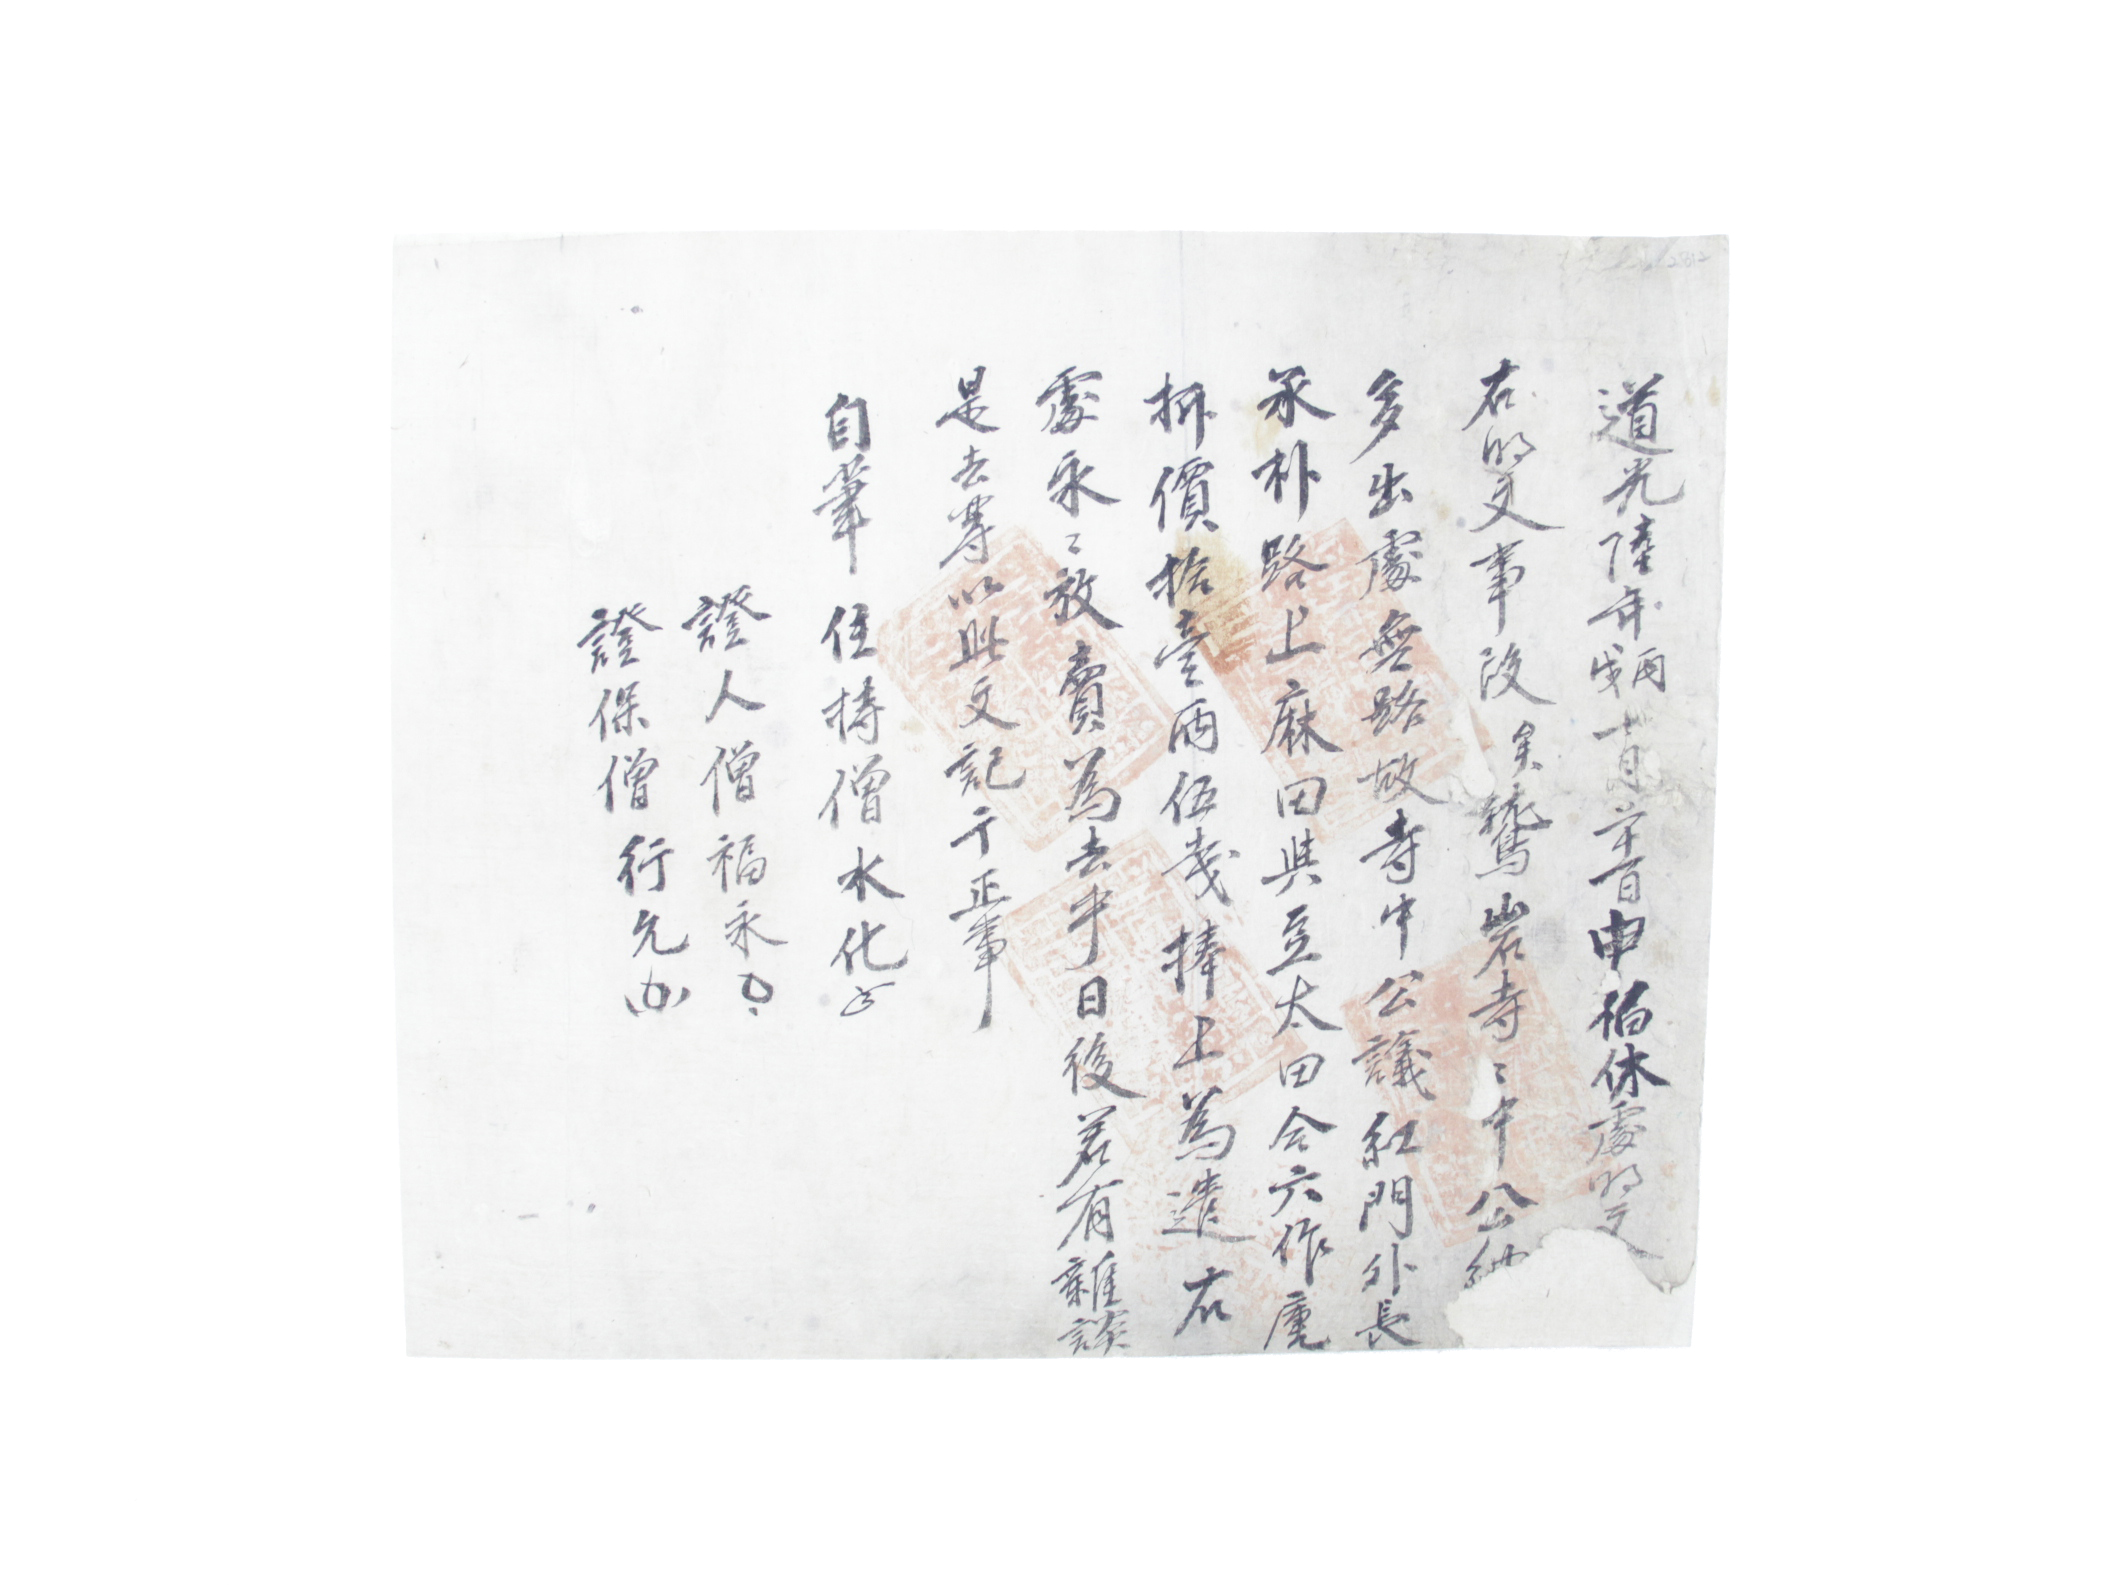 道光陸年丙戌十一月二十一日申伯休處明文
右明文事段矣鷲岩寺〻中公納
多出處無路故寺中公議紅門外長
承朴路上麻田與豆太田合六作庫
折價拾壹兩伍戔捧上為遣右
處永〻放賣為去乎日後若有雜談
是去等以此文記卞正事
自筆住持僧水化
證人僧福永
證保僧行允